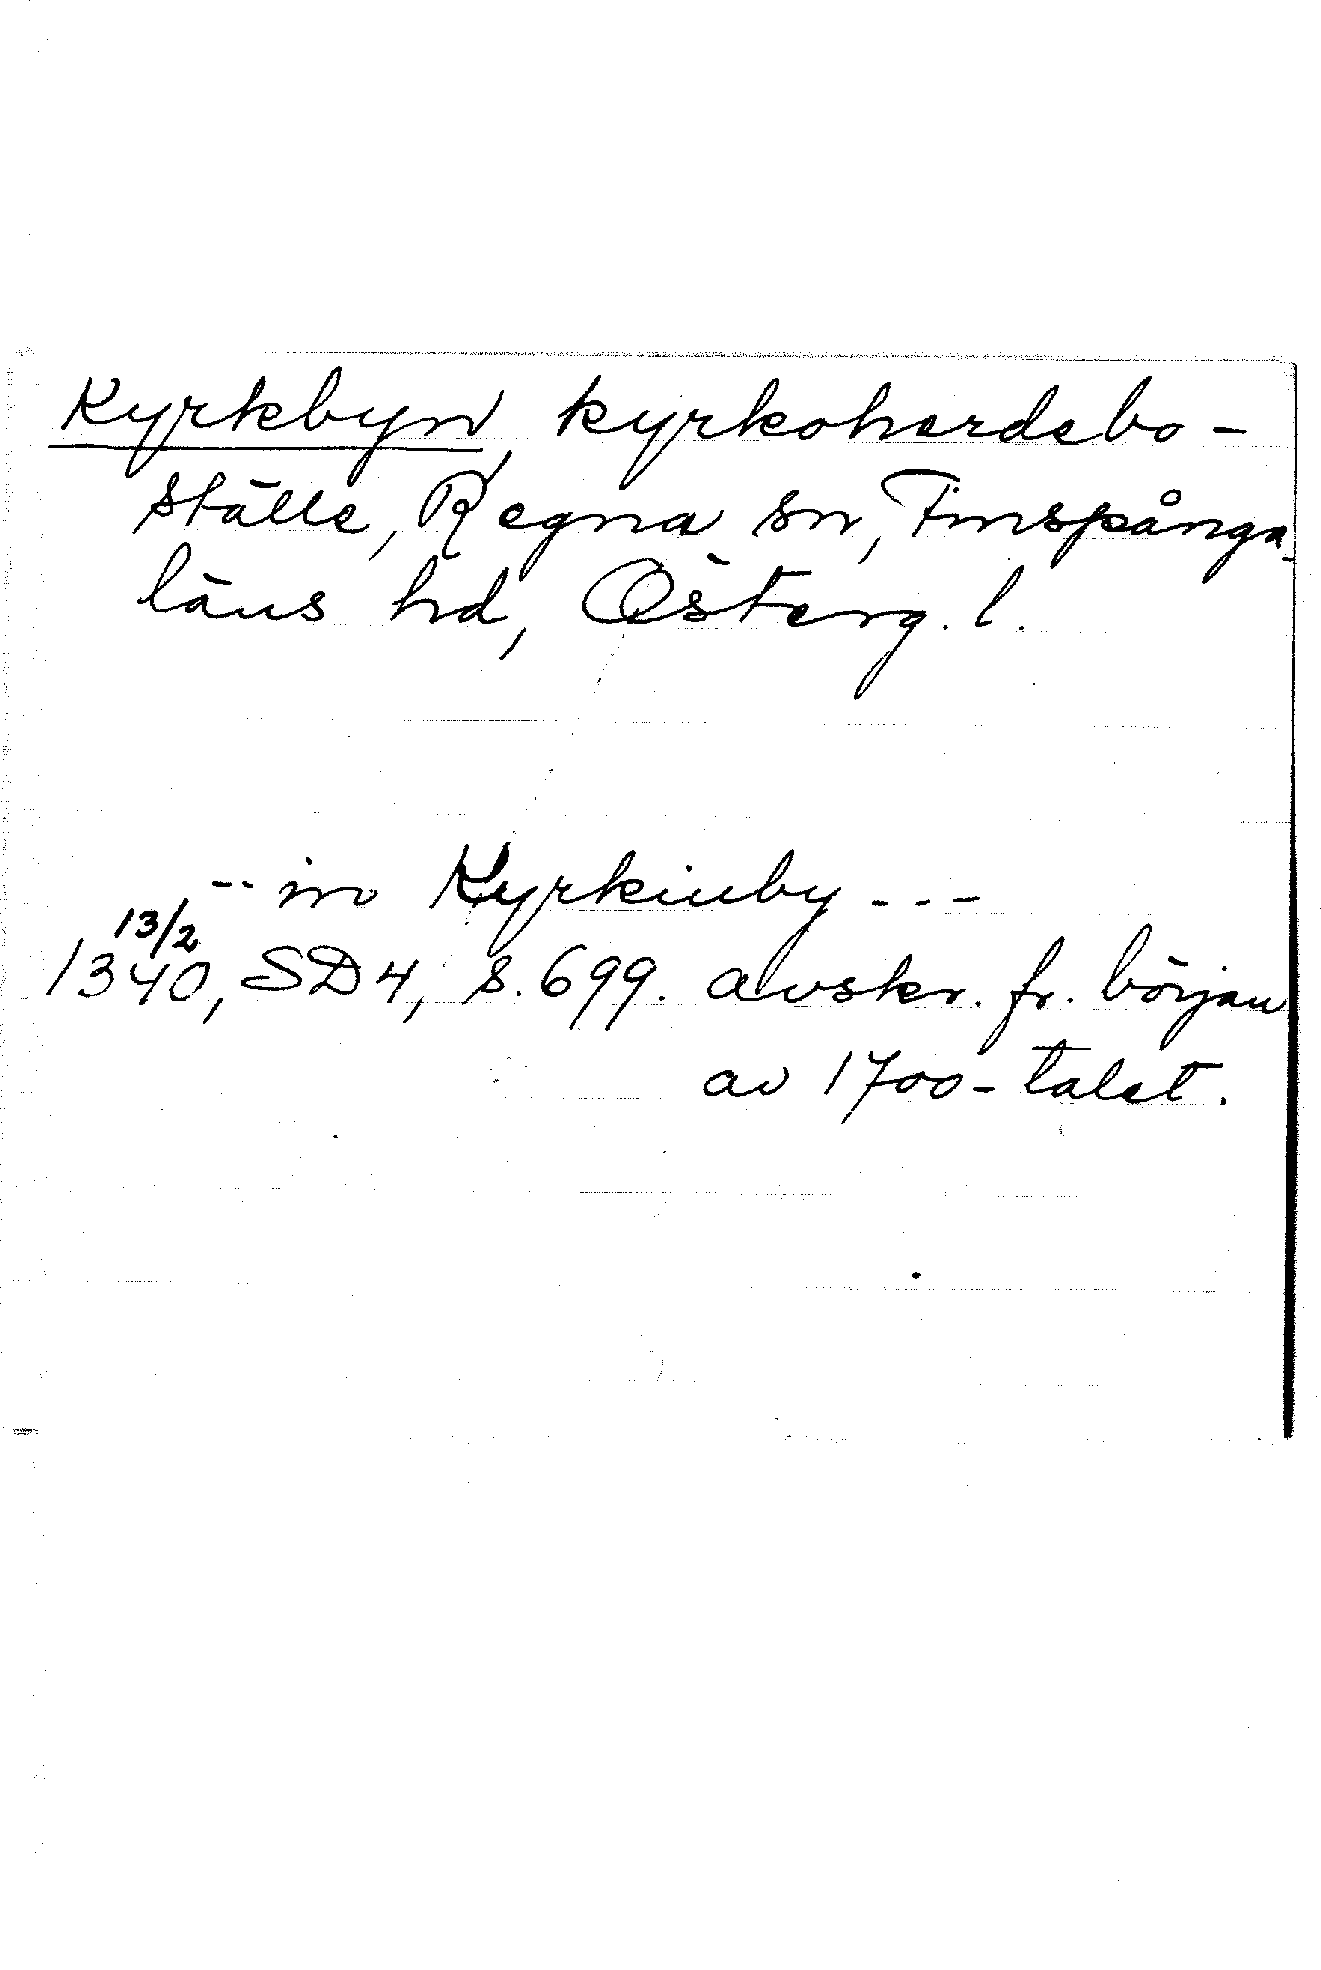 Kyrkbyn, kyrkoherdebo-
ställe, Regna sn, Finspånga
läns hd, Österg. l.
-- in Kyrkiuby ---
13/2
1340, SD 4, s. 699. avskr. fr. början
av 1700-talet.